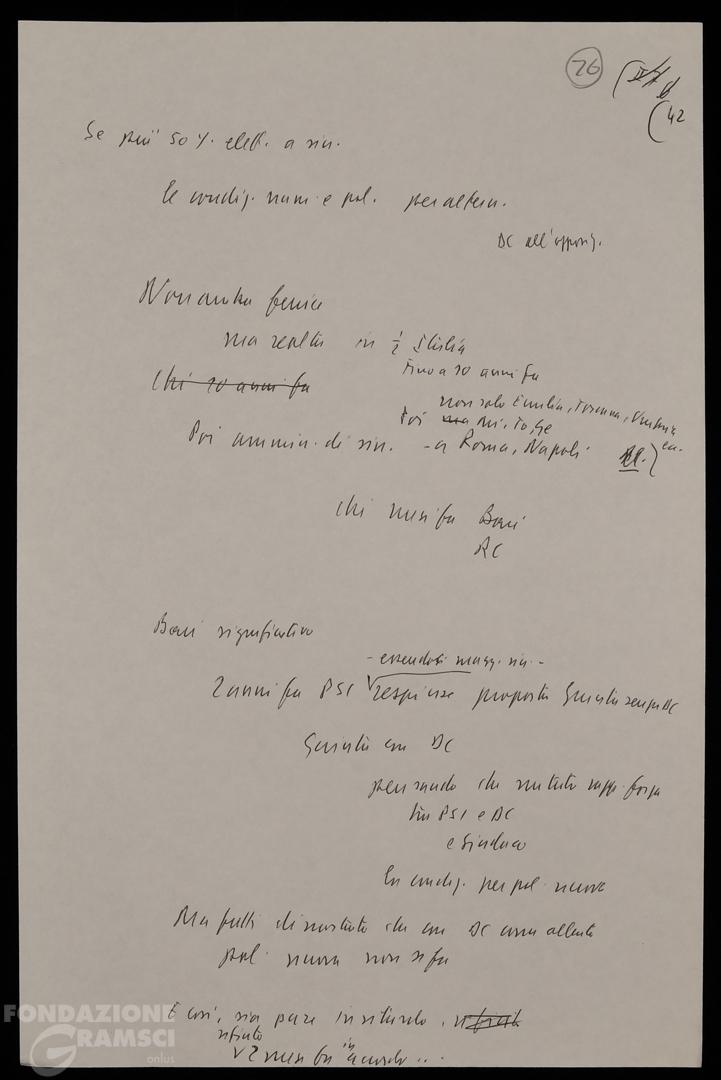 26
42
Se più 50 %. elett. a sin.
le condiz. num e pol. per altern.
DC all'oppos.
Non anche fenice
ma realtà in ½ Italia
Fino a 10 anni fa
Chi 10 anni fa
non solo Emilia, Toscana, Umbria
Poi ma Mi, To, Ge
Poi ammin. di sin. - a Roma, Napoli
Chi mesi fa Bari
RC
Bari significativo
- essendoci magg. sin. -
2 anni fa PSI respinse proposta Giunta senza DC
Giunta con DC
pensando che mutato rapp. forza
tra PSI e DC
e Sindaco
In condiz. per pol. nuova
Ma fatti dimostrato che con DC come alleato
pol. nuova non si fa
E così, sia pure in ritardo,
rifiuto
2 mesi fa accordo ..
FONDAZIONE
GRAMSCI
onlus